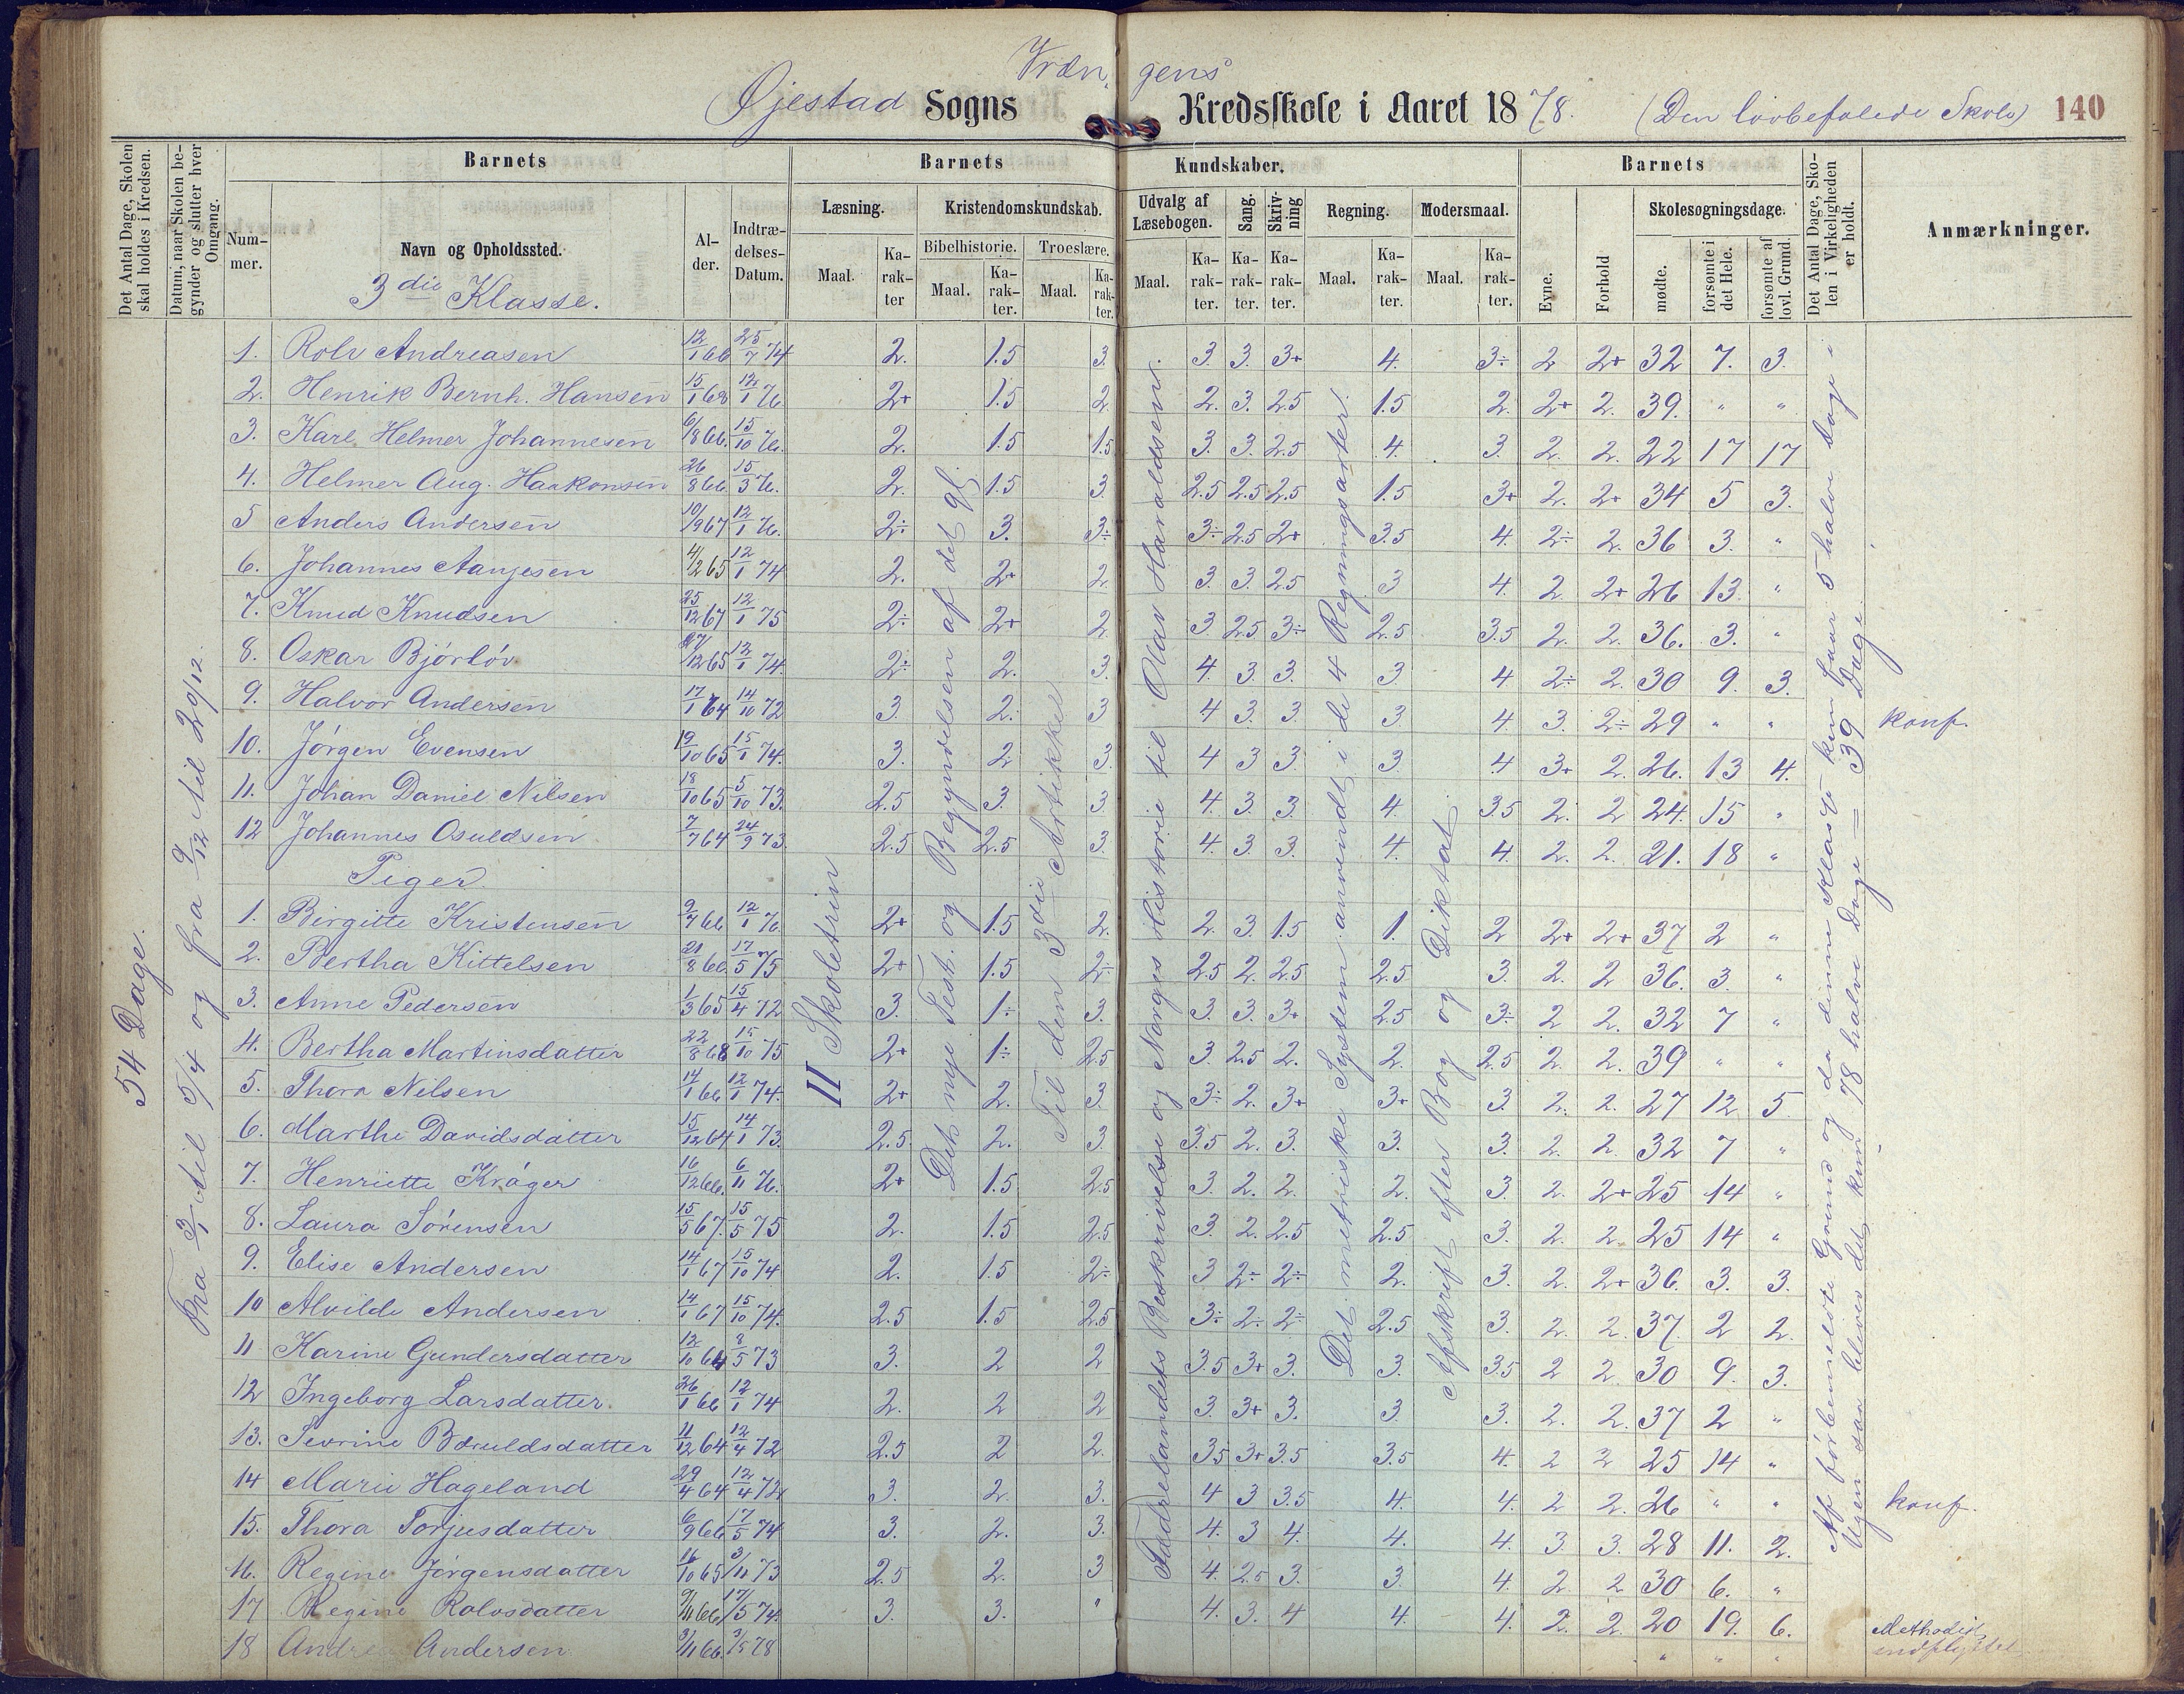 Vræn gens
Øjestad Sogns Kredsskole i Aaret 1878. (Den lovbefalede Skole) 140
Det Antal Dage, Skolen skal holdes i Kredsen.
Datum, naar Skolen begynder og slutter hver Omgang.
Barnets
Barnets
Kundskaber.
Barnets
Det Antal Dage, Skolen i Virkeligheden er holdt.
Anmærkninger.
Nummer.
Navn og Opholdssted.
Alder.
Indtrædelses-Datum.
Læsning.
Kristendomskundskab.
Udvalg af Læsebogen.
Sang.
Skrivning
Regning.
Modersmaal.
Evne.
Forhold
Skolesøgningsdage.
Bibelhistorie.
Troeslære.
Maal.
Karakter
Maal.
Karakter.
Maal.
Karakter.
Maal.
Karakter.
Karakter.
Karakter.
Maal.
Karakter.
Maal.
Karakter.
mødte.
forsømte i det Hele.
forsømte af lovl. Grund.
3die Klasse.
54 Dage.
Fra 3/1 til 5/4 og fra 9/12 til 20/12.
II Skoletrin
Det nye Test. og Begyndelsen af det gl.
Til den 3die Artikkel
Fædrelandets Beskrivelse og Norges Historie til Olav Haraldssen.
Det metriske System anvendt i de 4 Regningsarter.
Afskrift efter Bog og Diktat
Af førbenævnte Grund og da denne Klasse kun faar 5 halve Dage i
Ugen saa bliver det kun 78 halve Dage = 39 Dage.
1. Rolv Andreasen 12/1 66 25/7 74 2. 1.5 3. 3. 3. 3+ 4. 3÷ 2 2+ 32 7. 3.
2. Henrik Bernh. Hansen 15/1 68 12/1 76 2+ 1.5 2. 2. 3. 2.5 1.5 2. 2+ 2. 39. " "
3. Karl Helmer Johannesen 6/8 66. 15/10 76. 2. 1.5 1.5 3. 3. 2.5 4. 3. 2. 2. 22 17 17
4. Helmer Aug. Haakonsen 26/8 66. 15/3 76. 2. 1.5 3. 2.5 2.5 2.5 1.5 3+ 2. 2+ 34 5 3.
5 Anders Andersen 10/9 67 12/1 76. 2÷ 3. 3÷ 3÷ 2.5 2+ 3.5 4. 2÷ 2. 36 3. "
6. Johannes Aanjesen 4/2 65 12/1 74 2. 2+ 2. 3. 3. 2.5 3 4. 2. 2+ 26 13. "
7. Knud Knudsen 25/12 67 12/1 75 2÷ 2+ 2. 3. 2.5 3÷ 2.5 3.5 2. 2. 36. 3. "
8. Oskar Bjórlóv 27/12 65 12/1 74. 2÷ 2. 3. 4. 3. 3. 3 4 2÷ 2. 30 9. 3.
9. Halvor Andersen 17/1 64 14/10 72 3. 2. 3 4 3. 3. 3. 4. 3. 2÷ 29 " " konf.
10. Jórgen Evensen 19/10 65 15/1 74. 3. 2 3. 4 3 3. 3 4 3+ 2. 26. 13 4.
11. Johan Daniel Nilsen 18/10 65 5/10 73. 2.5 3. 3 4. 3. 3. 4. 3.5 2. 2 24. 15 "
12 Johannes Osuldsen 7/7 64 24/9 73. 2.5 2.5 3. 4. 3. 3. 4. 4. 2. 2. 21. 18 "
Piger.
1. Birgitte Kristensen 9/7 66 12/1 76. 2+ 1.5 2. 2. 3. 1.5 1. 2 2+ 2+ 37 2 "
2. Bertha Kittelsen 21/8 66. 17/5 75 2+ 1.5 2÷ 2.5 2. 2.5 2.5 3. 2. 2 36. 3. "
3. Anne Pedersen 1/3 65 15/4 72 3. 1÷ 3. 3. 3. 3+ 2.5 3÷ 2 2. 32 7 "
4. Bertha Martinsdatter 22/8 68 15/10 75 2+ 1÷ 2.5 3. 2.5 2. 2. 2.5 2. 2. 39 " "
5. Thora Nilsen 14/1 66 12/1 74. 2+ 2. 3. 3÷ 2. 3+ 3+ 3. 2. 2. 27 12 5
6. Marthe Davidsdatter 15/12 64 14/1 73. 2.5. 2. 3. 3.5 2. 3. 3. 3. 2. 2. 32 7 "
7. Henriette Kráger 16/12 66. 6/11 76. 2+ 1.5 2.5 3. 2. 2. 2. 3. 2. 2+ 25 14 "
8. Laura Sórensen 15/5 67. 15/5 75 2. 1.5 2.5 3. 2. 2.5 2.5 3. 2. 2. 25 14 "
9. Elise Andersen 14/1 67 15/10 74 2. 1.5 2÷ 3 2÷ 2÷ 2. 3. 2. 2+ 36. 3. 3.
10 Alvilde Andersen 14/1 67 15/10 74. 2.5 1.5 2.5 3÷ 2÷ 2÷ 2.5 3. 2. 2. 37 2 2.
11 Karine Gundersdatter 12/10 64 8/5 73 3. 2 2 3.5 3+ 3. 3. 3.5 2 2 30 9. 3.
12 Ingeborg Larsdatter. 26/1 66 12/1 74 2. 2 2 3. 3+ 3. 3 3. 2. 2. 37 2 "
13. Sevrine Børuldsdatter 11/12 64 12/4 72 2.5 2 2. 3.5 3+ 3.5 3.5 4. 2 2 25 14 "
14 Marie Hageland 29/4 64 12/4 72 3. 2. 3. 4 3 3.5 4. 4. 2 2. 26 " " konf.
15. Thora Torjusdatter 6/9 66 17/5 74 3. 2. 3. 4. 3 4. 4. 4. 3. 3. 28 11. 2.
16. Regine Jórgensdatter 16/10 65 3/11 73 2.5 2. 3 4. 2.5 3. 3. 4. 2. 2 30 6. "
17 Regine Rolvsdatter 9/11 66 17/5 74. 3. 3. " 4. 3. 4 4. 4. 2. 2. 20 19. 6. Methodist
18 Andrea Andersen 3/11 66. 3/5 78 " " " indflyttet